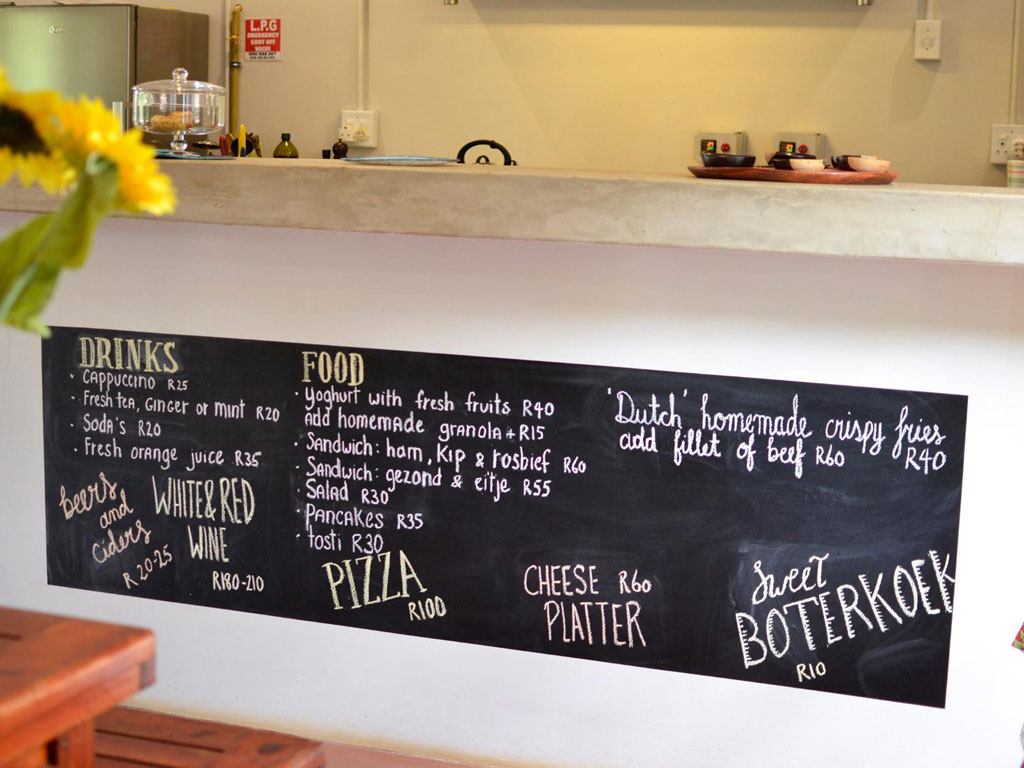 LG
L.P.G
EMERGENCY
SHUT OFF
VALVE
DRINKS
· Cappuccino R25
· Fresh tea, Ginger or mint R20
· Soda's R20
· Fresh orange juice R35
beers
and
ciders
R20-25
WHITE & RED
WINE
R180-210
FOOD
· Yoghurt with fresh fruits R40
add homemade granola + R15
· Sandwich: ham, Kip & rosbief R60
· Sandwich: gezond & eitje R55
· Salad R30
· Pancakes R35
· tosti R30
PIZZA
R100
'Dutch' homemade crispy fries
R40
add fillet of beef R60
CHEESE R60
PLATTER
Sweet
BOTERKOEK
R10